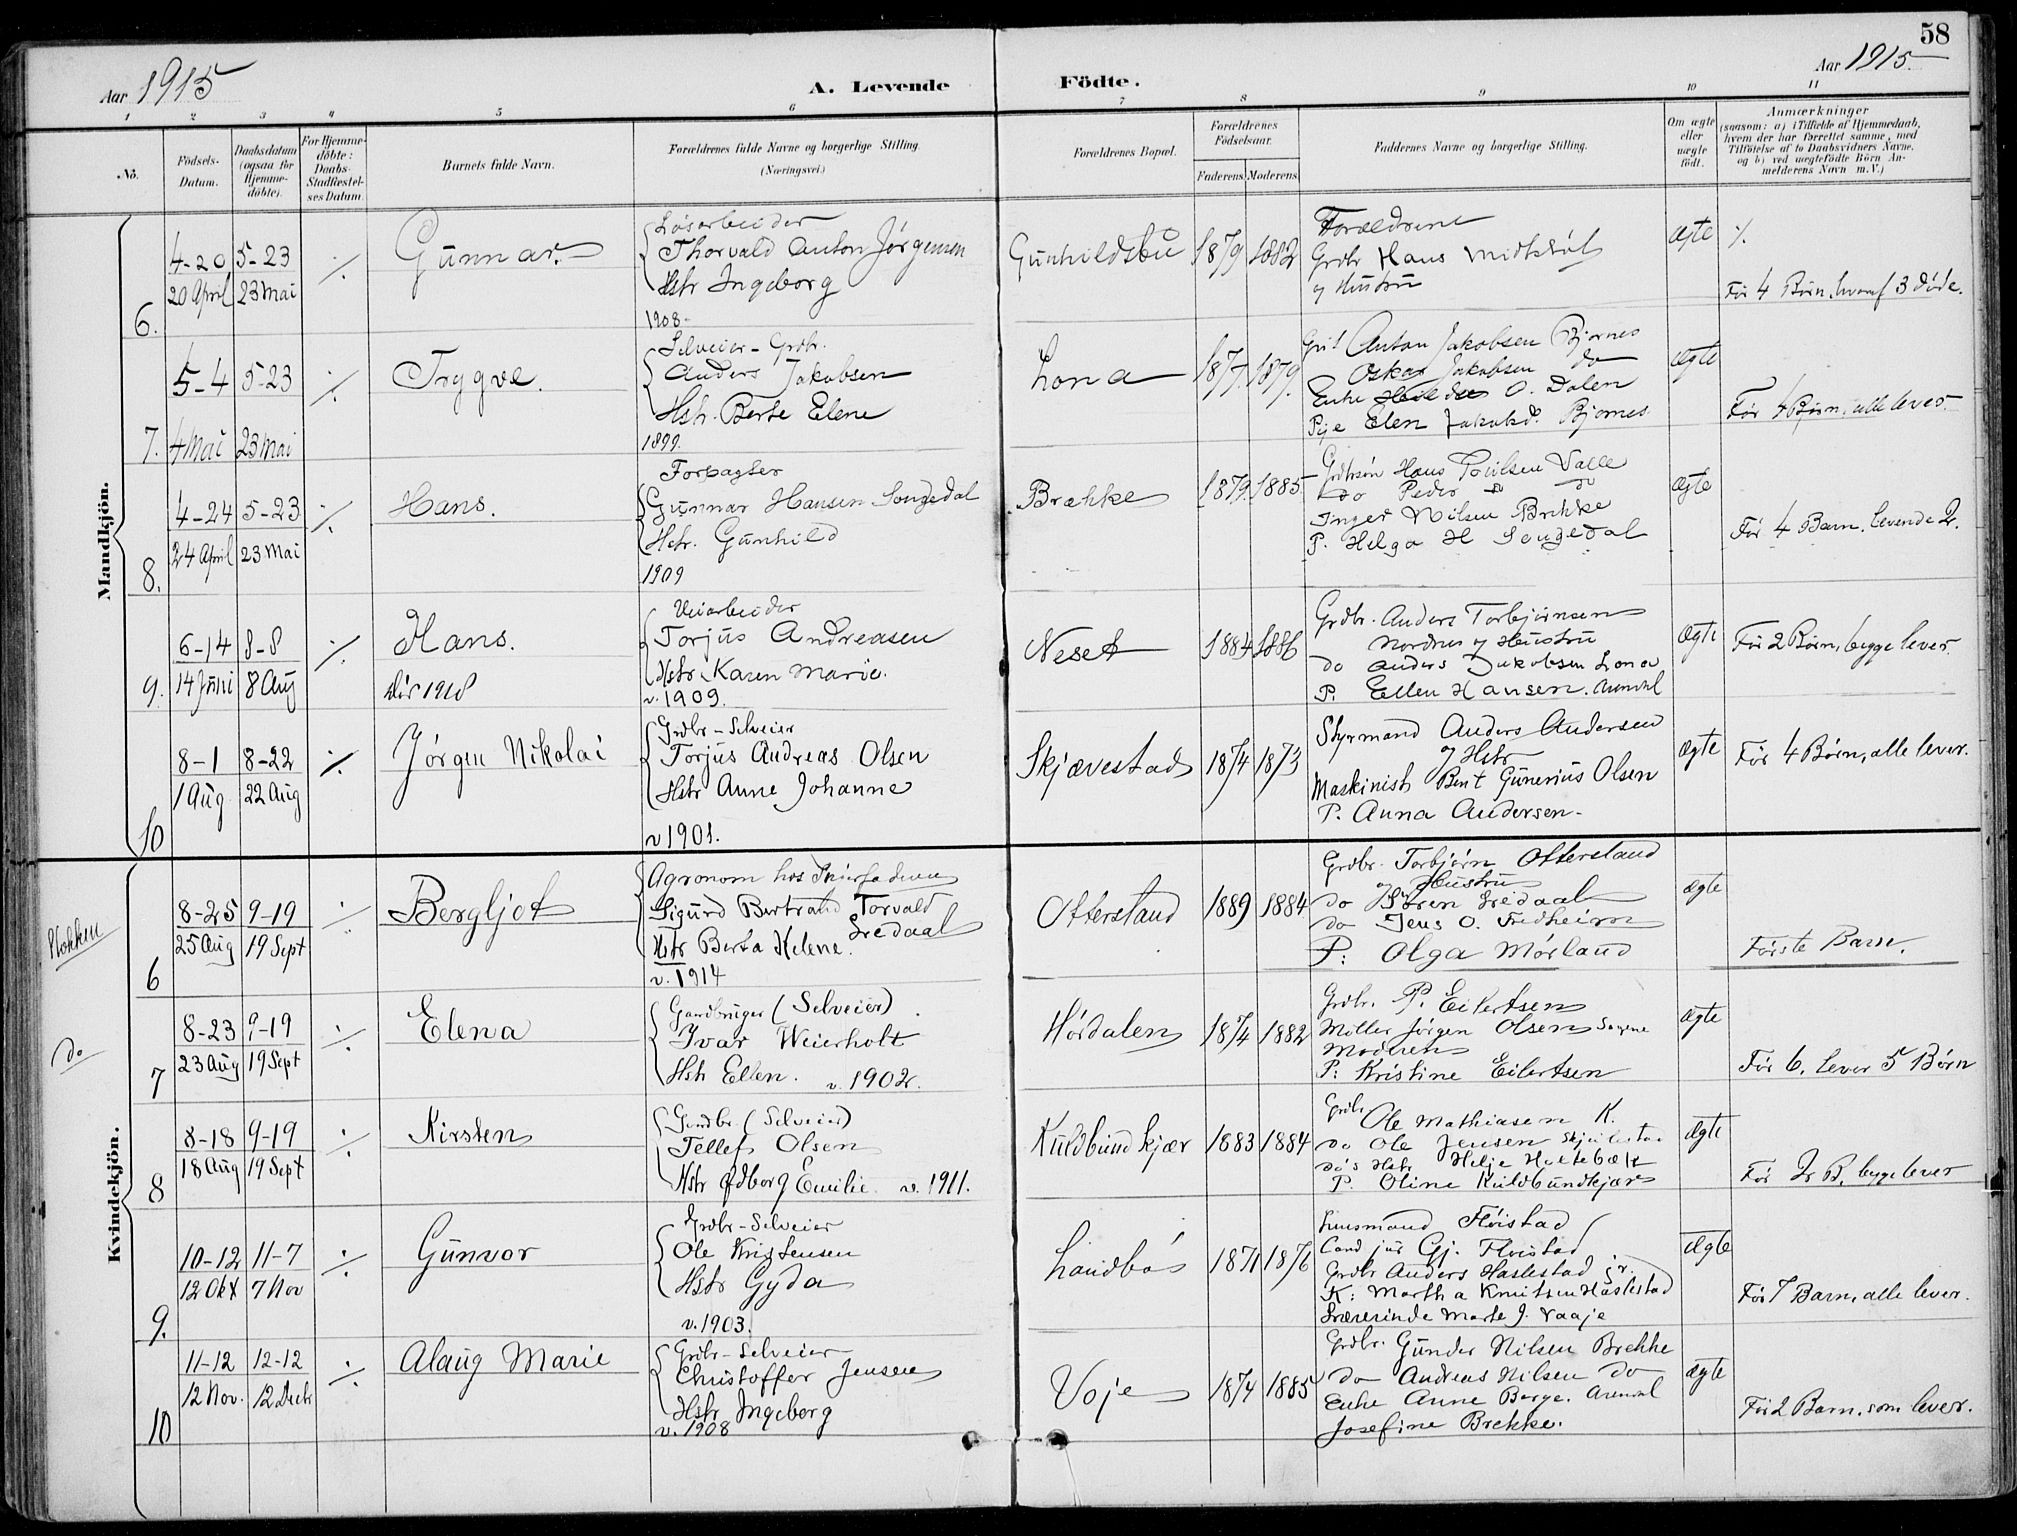 58
Aar 1915
A. Levende Födte.
Aar 1915
1 2 3 4 5 6 7 8 9 10 11
No.
Födsels-Datum.
Daabsdatum (ogsaa for Hjemmedöbte).
For Hjemmedöbte: Daabs-Stadfæstelses Datum.
Barnets fulde Navn.
Forældrenes fulde Navne og borgerlige Stilling. (Næringsvei.)
Forældrenes Bopæl.
Forældrenes Födselsaar.
Faderens. Moderens.
Faddernes Navne og borgerlige Stilling.
Om ægte eller uægte födt.
Anmærkninger
(saasom: a) i Tilfælde af Hjemmedaab, hvem der har forrettet samme, med Tilföielse af to Daabsvidners Navne, og b) ved uægtefödte Börn Anmelderens Navn m.V.)
Mandkjön.
6.
4-20 5-23
20 April 23 Mai
Gunnar.
Løsarbeider
Thorvald Anton Jørgensen
Hstr Ingeborg
1908-
Gunhildsbu
1879 1882
Forældrene
Grdbr Hans
og Hustru
ægte
Før 4 Børn, hvoraf 3 døde.
7.
5-4 5-23
4 Mai 23 Mai
Trygve.
Selveier-Grdbr.
Anders Jakobsen
Hstr. Berte Elene
1899
Lona
1877. 1879.
Anton Jakobsen Bjornes
Oskar Jakobsen do
Enke O. Dalen
Pije Elen Jakobsd. Bjornes
ægte
Før 4 Børn, alle leves.
8.
4-24 5-23
24 April 23 Mai
Hans.
Forpagter
Gunnar Hansen Songedal
Hstr. Gunhild
1909
Brække
1879. 1885.
Hans Valle
do Peder do
Inger Nilsen Brekke
P. Helga H Songedal
ægte
Før 4 Barn, levende 2.
9.
6-14 8-8
14 Juni 8 Aug
Hans.
dør 1918
Veiarbeider
Torjus Andreasen
Hstr Karen Marie.
v. 1909.
Neset
1884 1886
Grdbr. Anders Torbjørnsen
Nordnes og Hustru
do Anders Jakobsen Lona
P. Ellen Hansen. Arendal
ægte
Før 2 Børn, begge lever.
10
8-1 8-22
1 Aug. 22 Aug
Jørgen Nikolai
Grdbr-Selveier
Torjus Andreas Olsen
Hstr Anne Johanne
v 1901.
Skjævestad
1874 1873
Styrmand Anders Andersen
og Hstr
Maskinist Bent Gunerius Olsen
P. Anna Andersen.
ægte
Før 4 Børn, alle lever.
Kvindekjön.
6
8-25 9-19
25 Aug 19 Sept
Bergljot
Agronom hos Svigerfaderen
Sigurd Bertrand Torvald
Hstr Berta Helene.
v. 1914
Otterstand
1889 1884
Grdbr. Torbjørn Otterstand
og Hustru
do Søren
do Jens O. Fredheim
P: Olga Mørland
ægte
Første Barn.
do
7
8-23 9-19
23 Aug 19 Sept
Elena
Gaardbruger (Selveier)
Ivar Weierholt
Hstr Ellen. v. 1902.
Hørdalen
1874 1882
Grdbr. P. Eilertsen
Møller Jørgen Olsen Songe
Moderen
P: Kristine Eilertsen
ægte
Før 6, lever 5 Børn
8
8-18 9-19
18 Aug 19 Sept
Kirsten
Grdbr (Selveier)
Tellef Olsen
Hstr Ødborg Emilie. v. 1911.
Kuldbundkjær
1883 1884
Grdbr Ole Mathiasen K.
do Ole Jensen
do's Hstr Helje Holtebæk
P. Oline Kuldbundkjær
ægte
Før 2 B, begge lever
9.
10-12 11-7
12 Okt 7 Nov
Gunvor
Grdbr-Selveier
Ole Kristensen
Hstr Gyda
v. 1903.
Landbø
1871 1876
Lensmand Fløistad
Cand jur Gj. Fløistad
Grdbr Anders Haslestad jr.
K: Martha Knutsen Haslestad
Lærerinde Marte J. Vaaje
Ægte
Før 7 Barn, alle lever.
10
11-12 12-12
12 Nov. 12 Decbr
Alaug Marie
Grdbr-Selveier
Christoffer Jensen
Hstr Ingeborg
v. 1908
Voje
1874 1885
Grdbr. Gunder Nilsen Brekke
do Andreas Nilsen do
Enke Anne Berge. Arendal
Josefine Brekke.
ægte
Før 2 Barn, som lever.